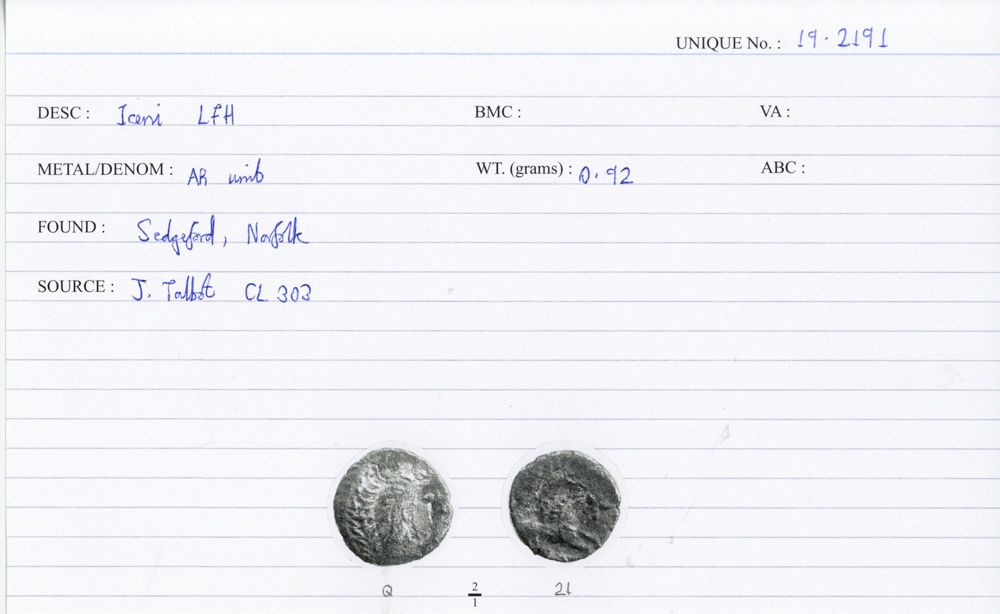 UNIQUE No. : 19.2191
DESC : Iceni LFH BMC : VA :
METAL/DENOM : AR unit WT. (grams) : 0.92 ABC :
FOUND : Sedgeford, Norfolk
SOURCE : J. Talbot CL 303
Q 2/1 21